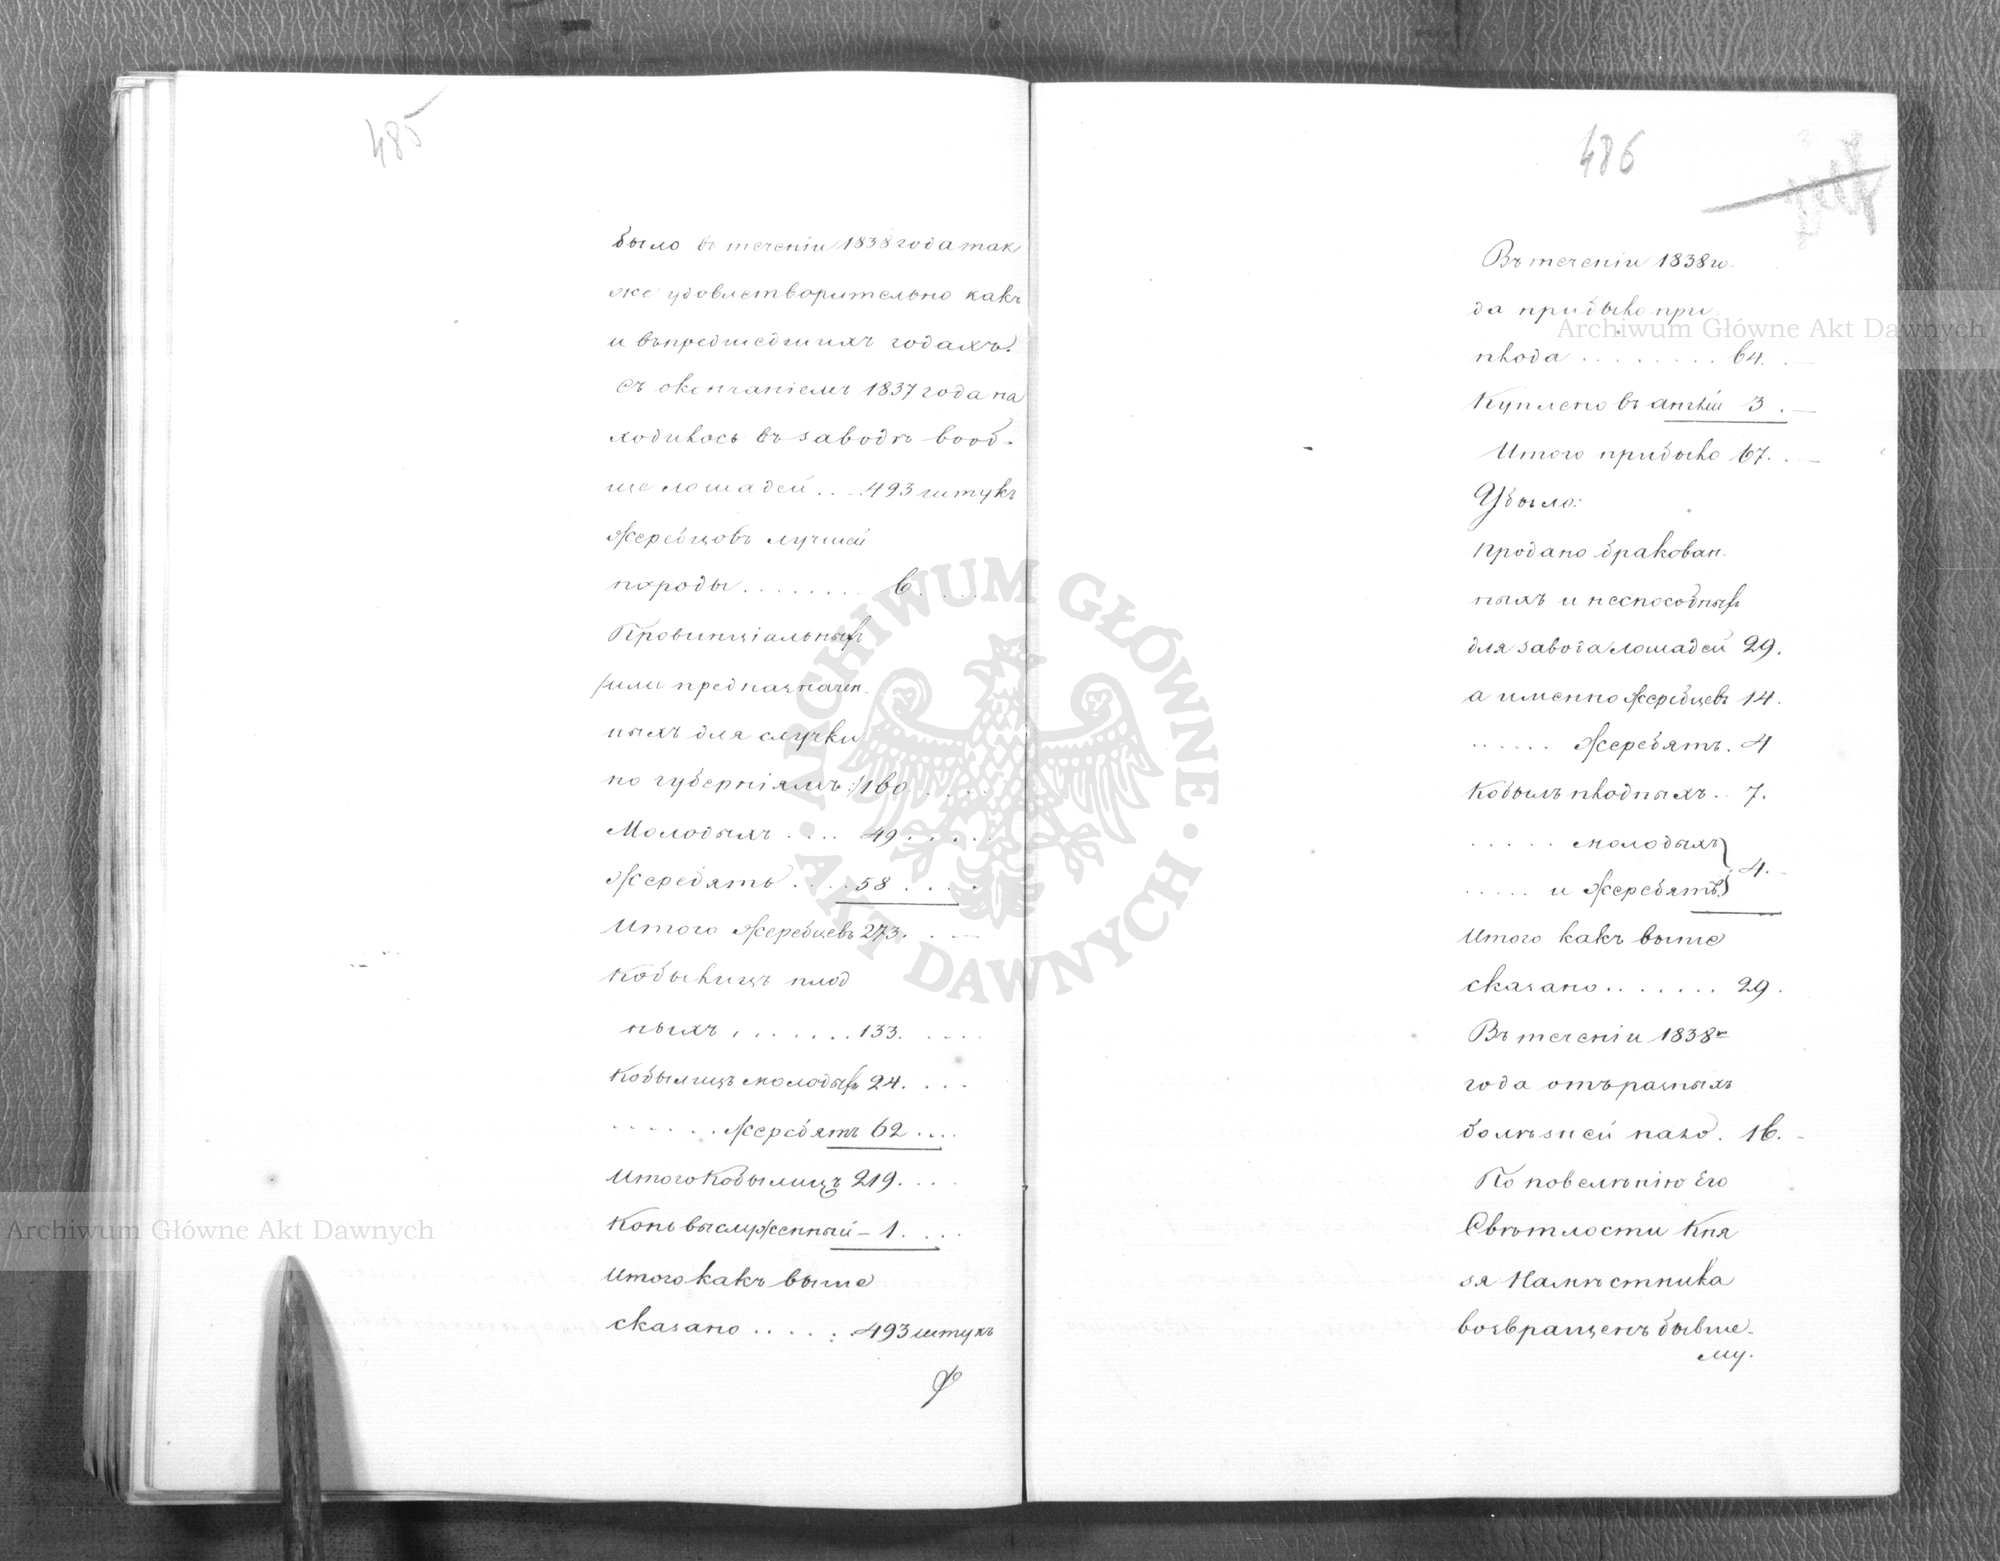 485
было въ теченіи 1838 года так
же удовлетворительно какъ
и въпредшедшихъ годахъ.
съ окончаніемъ 1837 года на
ходилось въ заводѣ вооб-
ще лошадей . . . 493 штукъ
Жеребцовъ лучшей
породы . . . . . . . . 6 . . . .
Провинціальныхъ
/или предназначен-
ныхъ для случки
по губерніямъ :/ 160 . . . .
Молодыхъ . . . . 49 . . . . .
Жеребятъ . . . . 58 . . . .
Итого Жеребцевъ 273. . . —
Кобылицъ плод
ныхъ . . . . . . . 133. . . . .
Кобылицъ молодыхъ 24. . . .
. . . . . . Жеребятъ 62 . . . .
Итого Кобылицъ 219. . . .
Конь выслуженный — 1. . . .
Итого какъ выше
сказано . . . . : 493 штукъ
486
Въ теченіи 1838 го-
да прибыло при
плода . . . . . . . . 64. . —
Куплено въ англіи 3 . —
Итого прибыло 67. . —
Убыло:
Продано бракован-
ныхъ и неспособныхъ
для завода лошадей 29.
а именно Жеребцевъ 14.
. . . . . . Жеребятъ. 4
Кобылъ плодныхъ. . 7.
. . . . . молодыхъ } 4. -
. . . . . и Жеребятъ }
Итого какъ выше
сказано . . . . . . . 29.
Въ теченіи 1838г
года отъ разныхъ
болѣзней пало. 16. -
По повелѣнію Его
Свѣтлости Кня
зя Намѣстника
возвращенъ бывше-
му.
Archiwum Główne Akt Dawnych
Archiwum Główne Akt Dawnych
· ARCHIWUM GŁÓWNE · AKT DAWNYCH